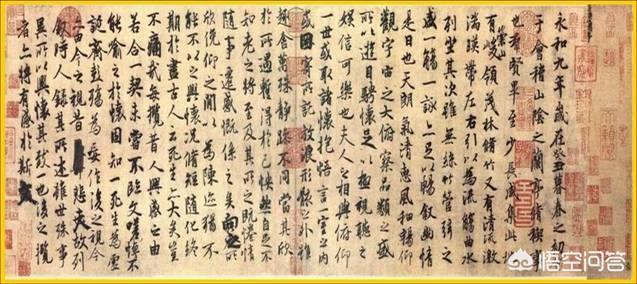 永和九年歲在癸丑暮春之初會
于會稽山陰之蘭亭脩稧事
也群賢畢至少長咸集此地
有崇山峻領茂林脩竹又有清流激
湍暎帶左右引以為流觴曲水
列坐其次雖無絲竹管弦之
盛一觴一詠亦足以暢敘幽情
是日也天朗氣清惠風和暢仰
觀宇宙之大俯察品類之盛
所以遊目騁懷足以極視聽之
娛信可樂也夫人之相與俯仰
一世或取諸懷抱悟言一室之內
或因寄所託放浪形骸之外雖
趣舍萬殊靜躁不同當其欣
於所遇蹔得於己怏然自足不
知老之將至及其所之既惓情
隨事遷感慨係之矣向之所
欣俛仰之閒以為陳迹猶不
能不以之興懷況脩短隨化終
期於盡古人云死生亦大矣豈
不痛哉每攬昔人興感之由
若合一契未嘗不臨文嗟悼不
能喻之於懷固知一死生為虛
誕齊彭殤為妄作後之視今
亦由今之視昔悲夫故列
敘時人錄其所述雖世殊事
異所以興懷其致一也後之攬
者亦將有感於斯文
悟空问答